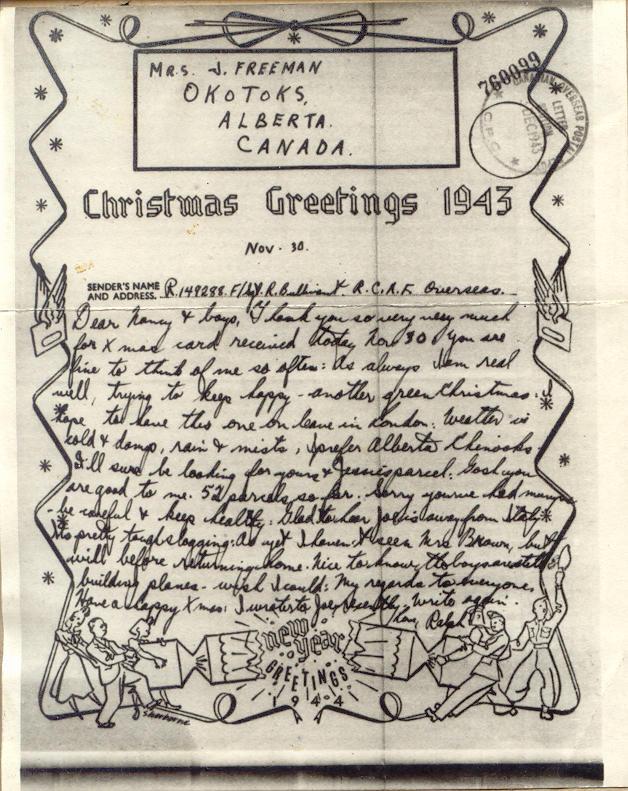 MRS. J. FREEMAN
OKOTOKS,
ALBERTA.
CANADA.
760099
CANADIAN OVERSEAS POSTAL
LETTER
DEC 1943
C.P.C.
Christmas Greetings 1943
Nov. 30.
SENDER'S NAME
AND ADDRESS. R.149288. R. R.C.A.F. Overseas.
Dear Nancy & boys, Thank you so very very much
for Xmas card received today Nov 30 You are
fine to think of me so often: As always I am real
well, trying to keep happy - another green Christmas: I
hope to have this one on leave in London. Weather is
cold & damp, rain & mists, I prefer Alberta Chinooks
I'll sure be looking for yours & Jessies parcel. Gosh you
are good to me. 52 parcels so far. Sorry youve had mumps
- be careful & keep healthy: Glad to hear Joe is away from Italy
Its pretty tough slogging: As yet I haven't seen Mrs Brown, but
will before returning home. Nice to know the boys are still
building planes - wish I could: My regards to everyone,
Have a happy Xmas: I wrote to Joe recently. Write again.
Ralph
new
year
GREETINGS
1944